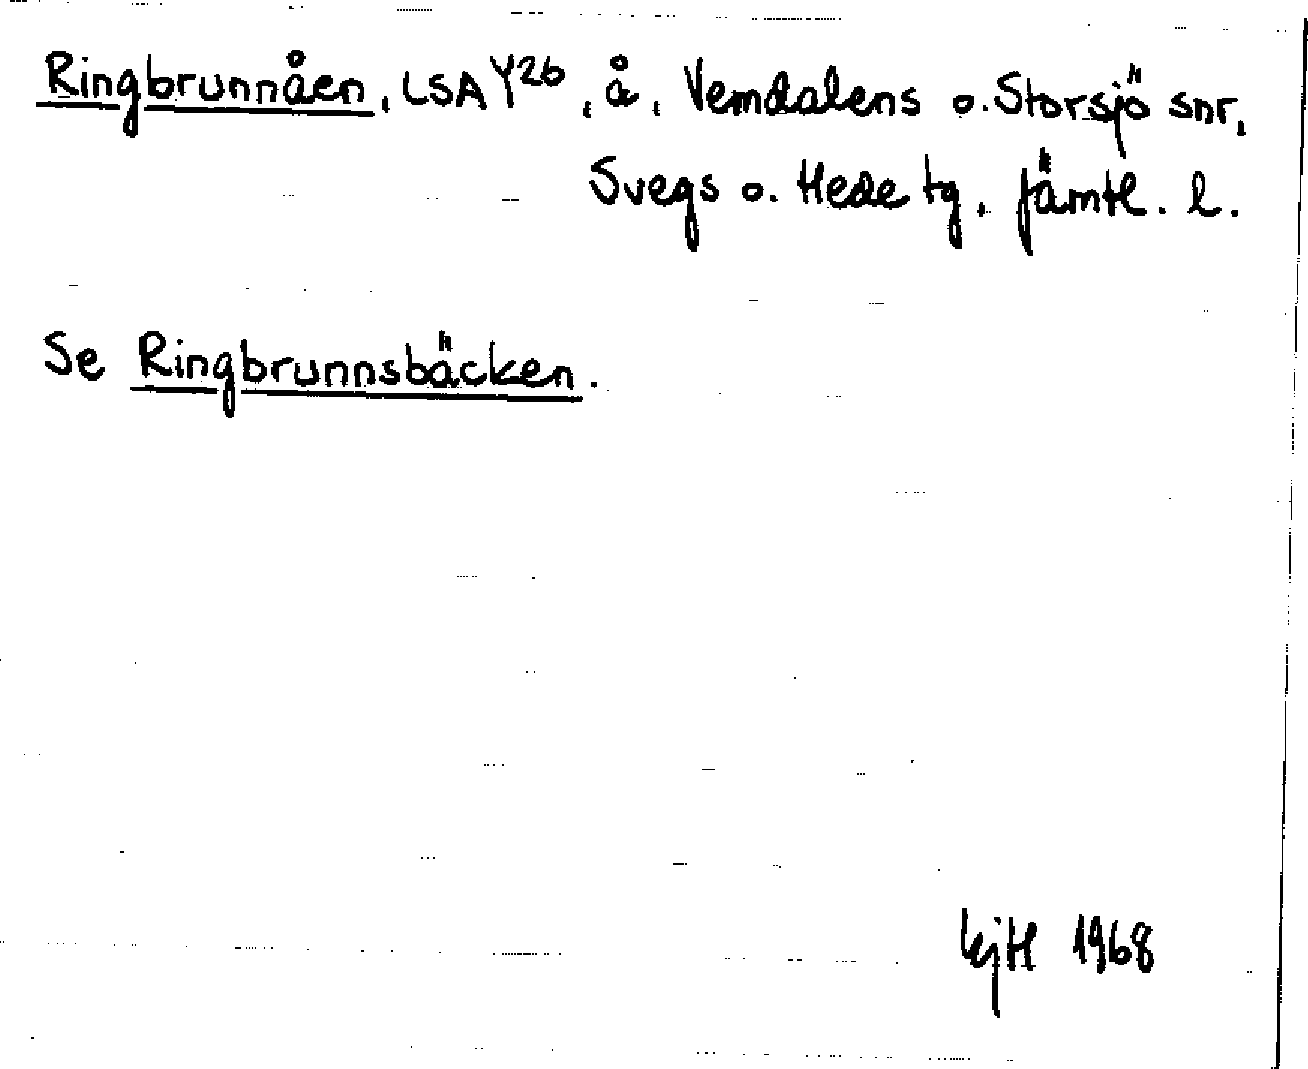 Ringbrunnåen, LSA Y26, å, Vemdalens o. Storsjö snr,
Svegs o. Hede tg, Jämtl. l.
Se Ringbrunnsbäcken.
1968